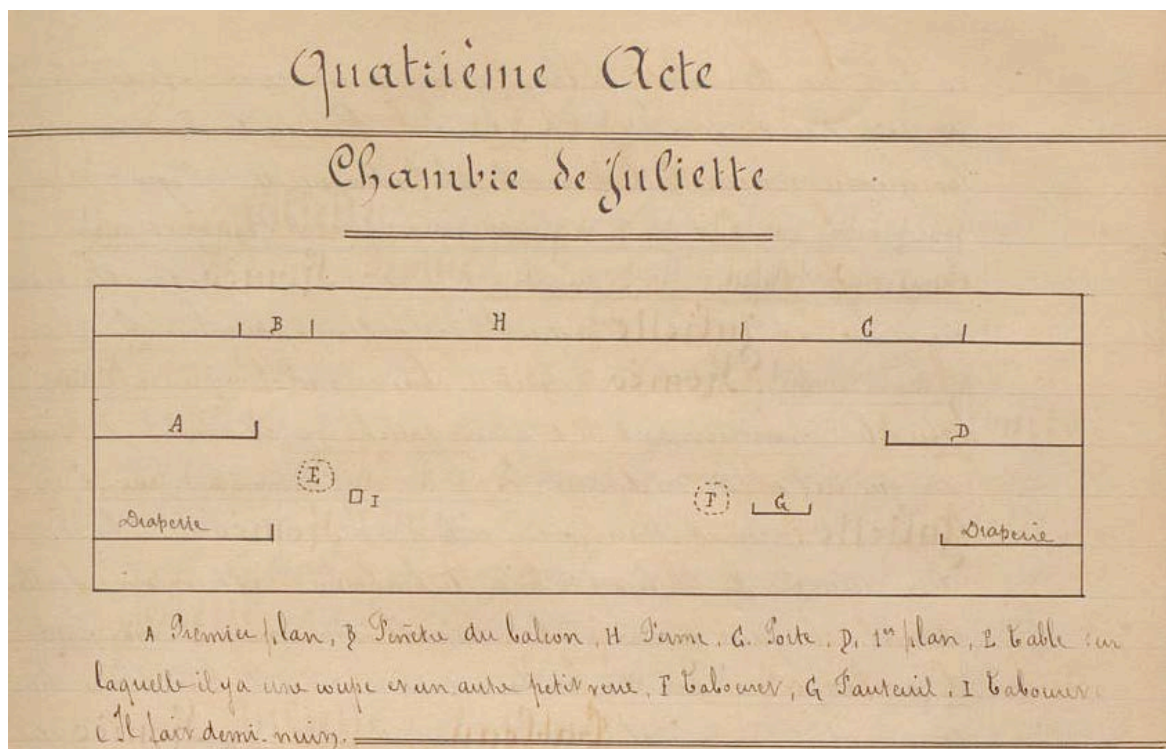 Quatrième Acte
Chambre de Juliette
B H C
A D
E I F G
Draperie Draperie
A Premier plan, B Fenêtre du balcon, H Ferme, C. Porte, D, 1er plan, E Table sur
laquelle il y a une coupe et un autre petit verre, F Tabouret, G Fauteuil, I Tabouret
Il fait demi-nuit.